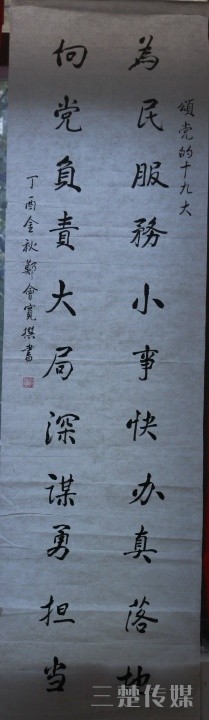 頌党的十九大
為民服務小事快办真落地
向党負責大局深谋勇担当
丁酉金秋鄭會寬撰書
三楚传媒